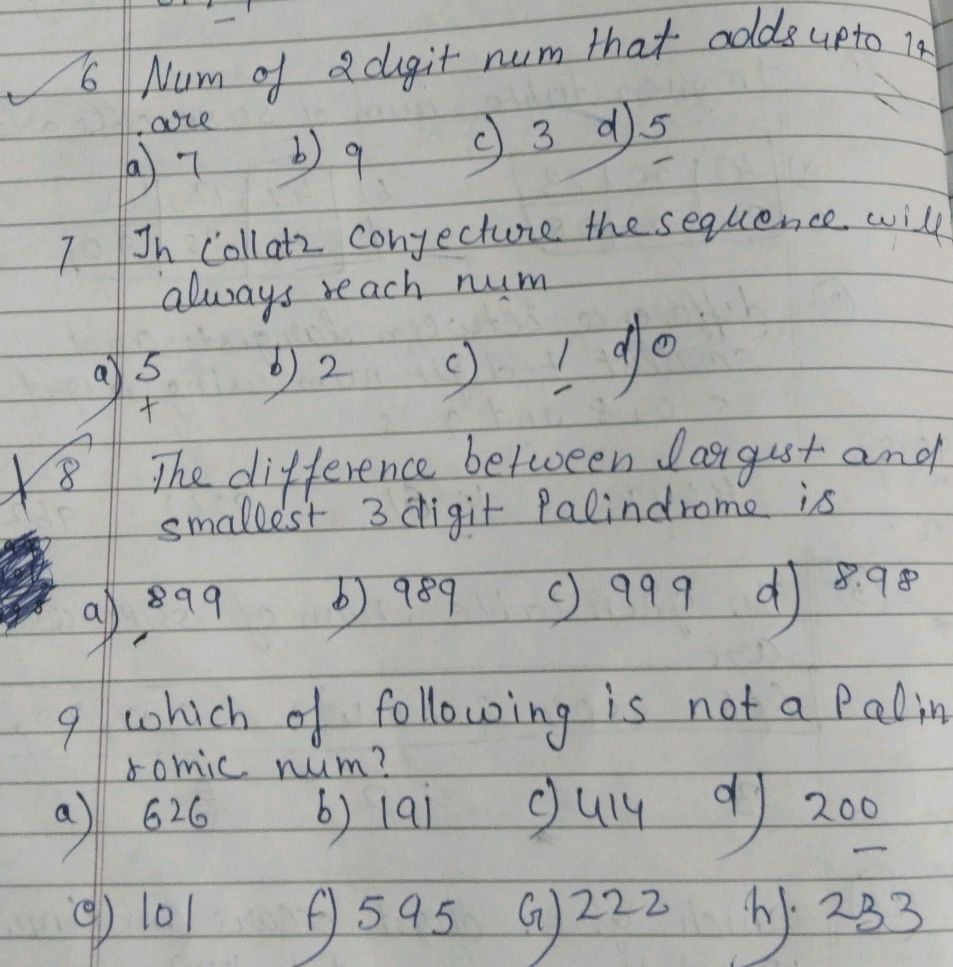 6 Num of 2 digit num that adds upto 14
are
a) 7 b) 9 c) 3 d) 5
7 In Collatz Conjecture the sequence will
always reach num
a) 5 b) 2 c) 1 d) 0
8 The difference between largest and
smallest 3 digit Palindrome is
a) 899 b) 989 c) 999 d) 898
9 which of following is not a Palin
romic num?
a) 626 b) 191 c) 414 d) 200
e) 101 f) 595 G) 222 h) 233